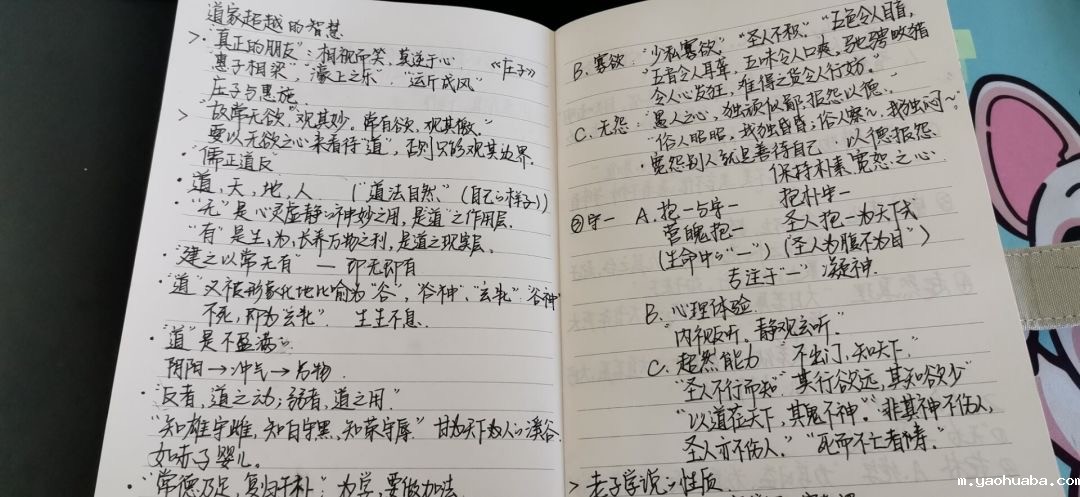 道家超越的智慧
> ·"真正的朋友"：相视而笑，莫逆于心. 《庄子》
惠子相梁，"濠上之乐"，"运斤成风"
庄子与惠施
> "故常无欲"，观其妙。常有欲，观其徼。"
要以无欲之心来看待"道"，否则只能观其边界.
·"儒正道反
·道，天，地，人 ("道法自然"（自己的样子）)
"无"是心灵虚静的神妙之用，是道之作用层.
"有"是生，为，长养万物之利，是道之现实层.
·"建之以常无有" — 即无即有
·"道"又被形象化地比喻为"谷"，"谷神"，"玄牝". "谷神
不死，即为玄牝". 生生不息.
·"道"是不盈满的.
阴阳→冲气→万物.
·"反者，道之动；弱者，道之用."
·"知雄守雌，知白守黑，知荣守辱." 甘为天下为人的溪谷.
如赤子婴儿。
·"常德乃足，复归于朴"：为学，要做加法
B. 寡欲："少私寡欲". "圣人不积". "五色令人目盲，
"五音令人耳聋，五味令人口爽，驰骋畋猎
令人心发狂，难得之货令人行妨."
C. 无怨："愚人之心，独顽似鄙. 报怨以德.
"俗人昭昭，我独昏昏，俗人察~，我独闷~"
·宽恕别人就是善待自己 以德报怨.
保持朴素宽恕之心.
②守一 A. 抱一与守一 抱朴守一
营魄抱一 圣人抱一为天下式
(生命中的"一") (圣人为腹不为目")
专注于"一" 凝神.
B. 心理体验.
"内视反听. 静观玄听."
C. 超然能力 "不出门，知天下."
"圣人不行而知" "其行欲远，其知欲少"
"以道莅天下，其鬼不神." "非其神不伤人，
圣人亦不伤人." "死而不亡者寿."
> 老子学说的性质
m.yaohuaba.com